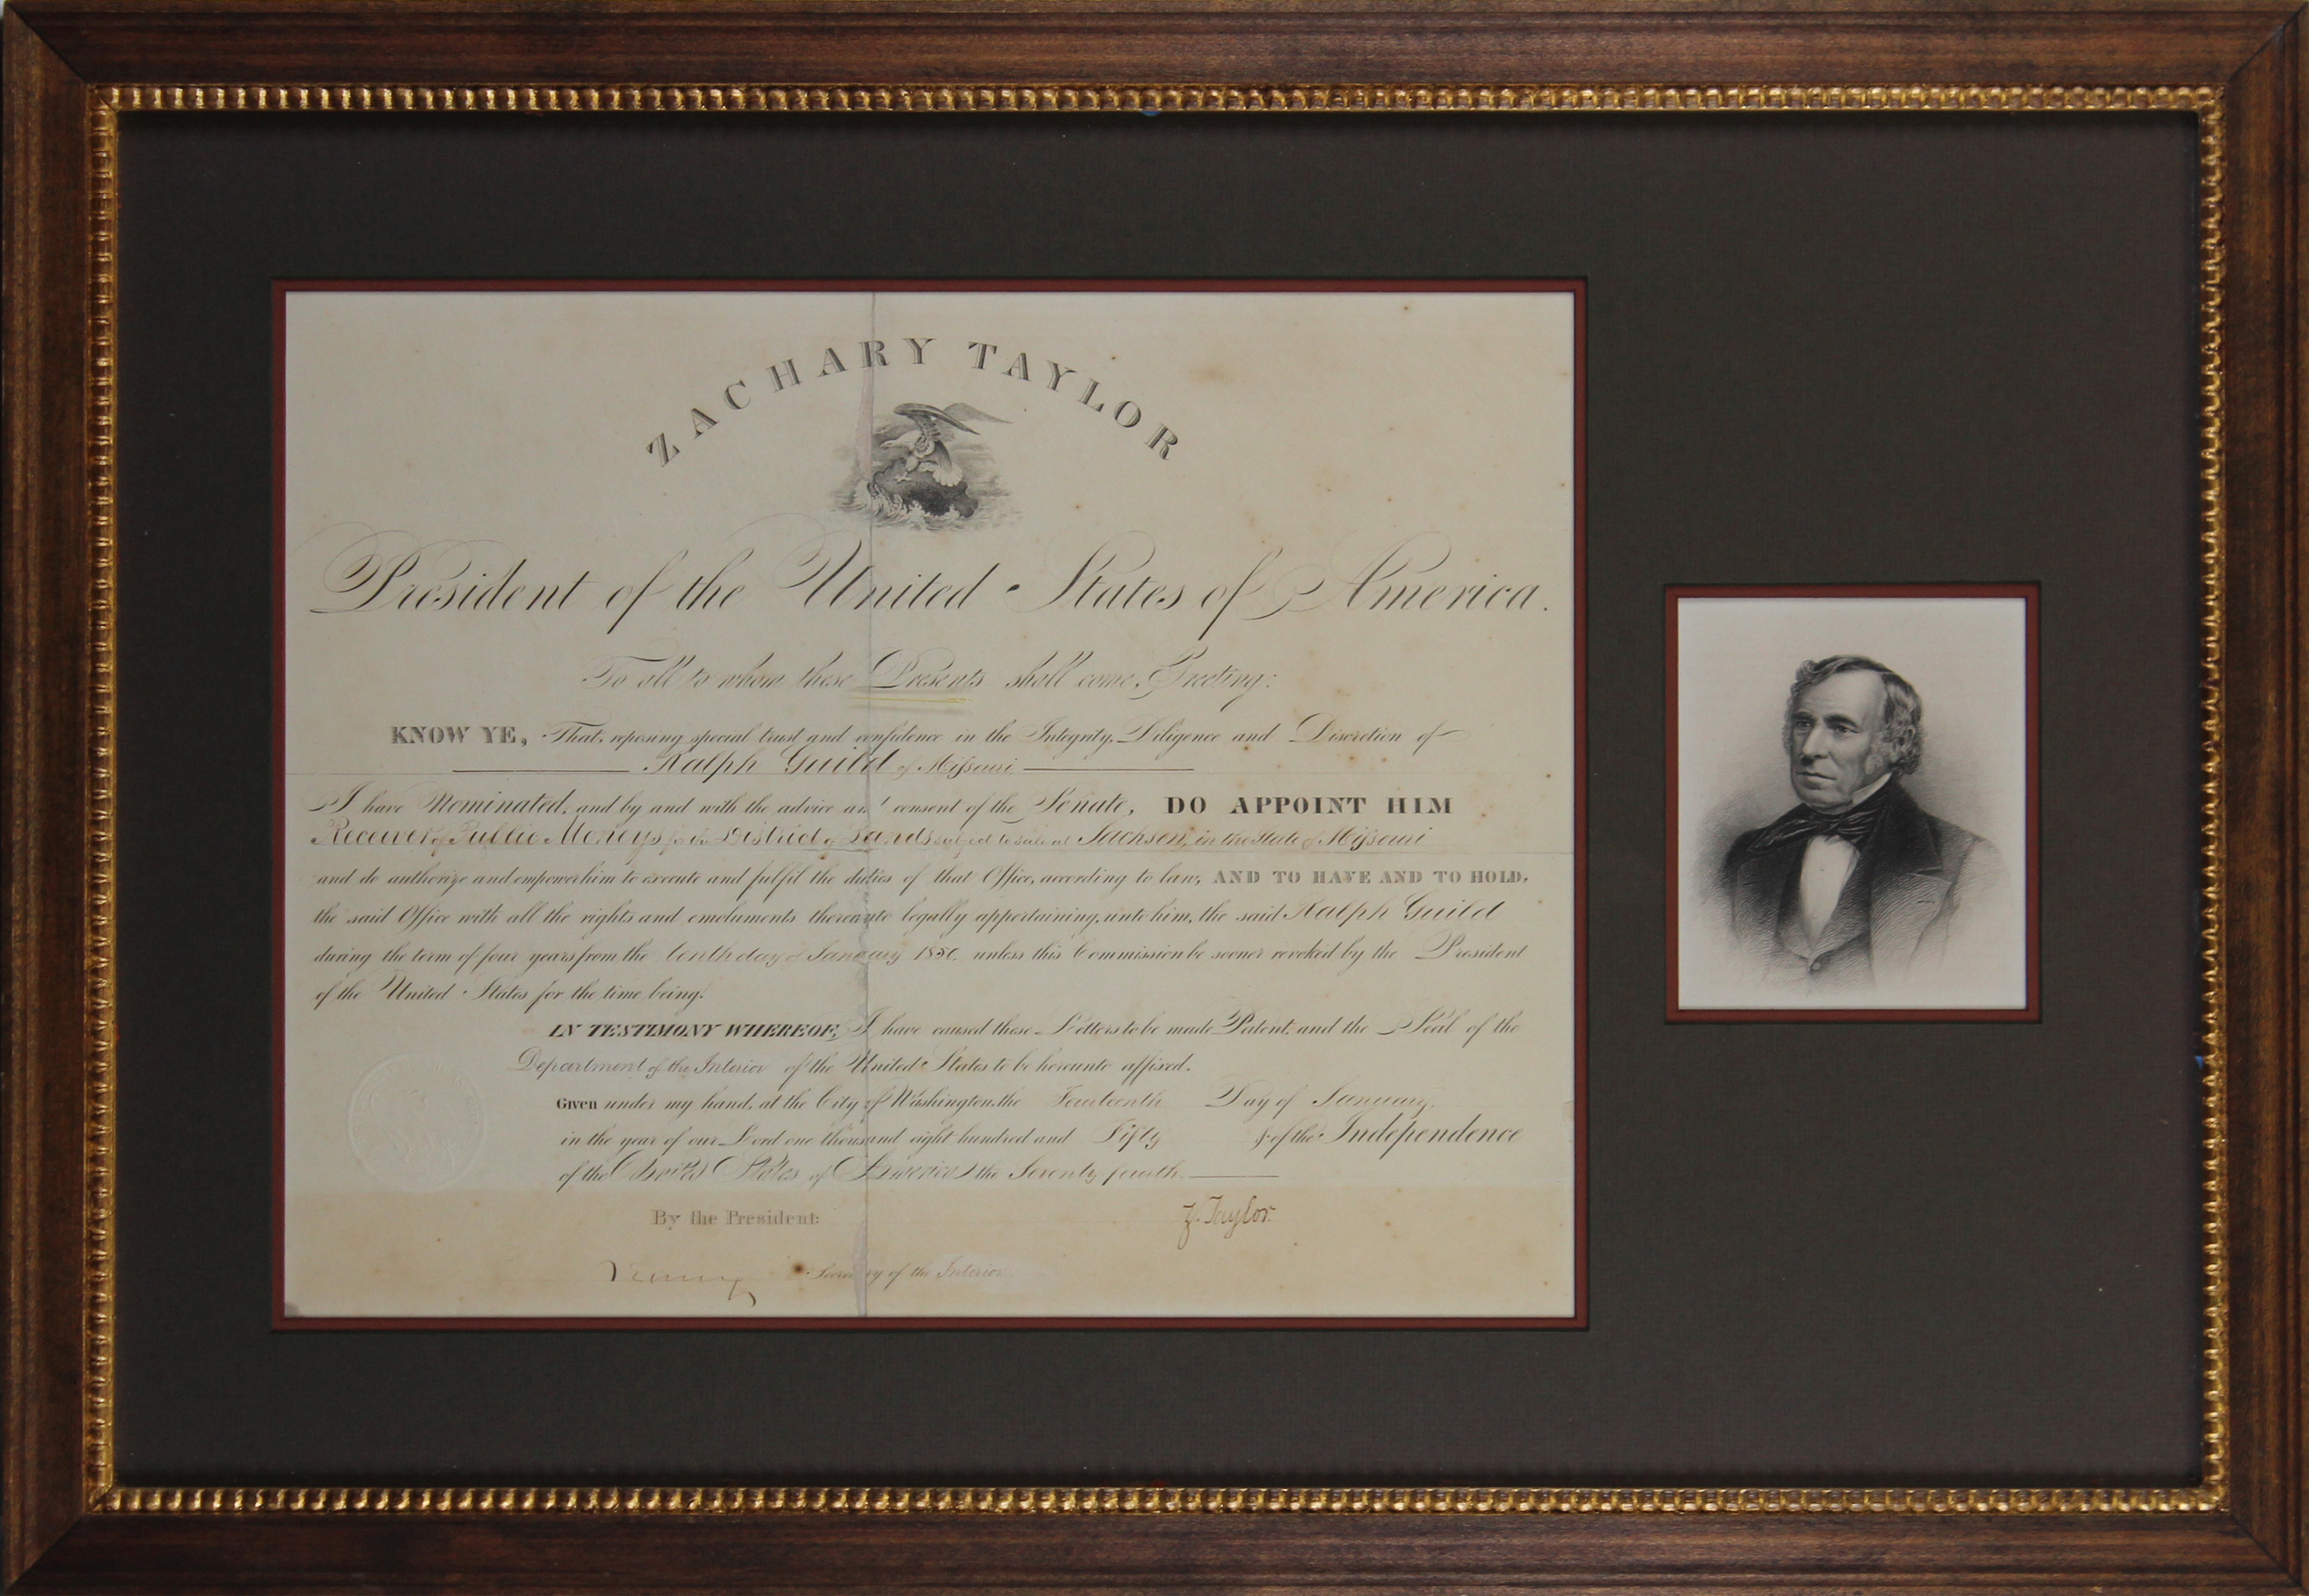 ZACHARY TAYLOR
President of the United States of America.
To all to whom these Presents shall come, Greeting:
KNOW YE, That, reposing special trust and confidence in the Integrity, Diligence and Discretion of
Ralph Guild of Missouri
I have Nominated, and by and with the advice and consent of the Senate, DO APPOINT HIM
Receiver of Public Moneys for the District of Lands subject to sale at Jackson, in the State of Missouri
and do authorize and empower him to execute and fulfil the duties of that Office, according to law, AND TO HAVE AND TO HOLD,
the said Office with all the rights and emoluments thereunto legally appertaining, unto him, the said Ralph Guild
during the term of four years from the tenth day of January 1850, unless this Commission be sooner revoked by the President
of the United States for the time being.
IN TESTIMONY WHEREOF, I have caused these Letters to be made Patent, and the Seal of the
Department of the Interior of the United States to be hereunto affixed.
Given under my hand, at the City of Washington, the Fourteenth Day of January,
in the year of our Lord one thousand eight hundred and Fifty & of the Independence
of the United States of America the Seventy fourth.
By the President:
Z. Taylor.
Secretary of the Interior